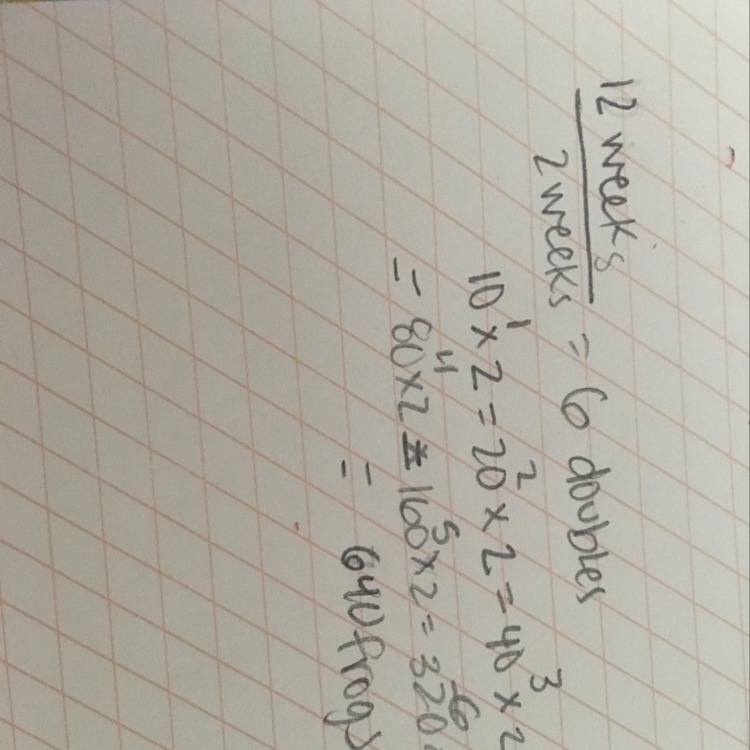 12 weeks
2 weeks = 6 doubles
10 x¹ 2 = 20 x² 2 = 40 x³ 2
= 80 x⁴ 2 = 160 x⁵ 2 = 320 ⁶
= 640 frogs